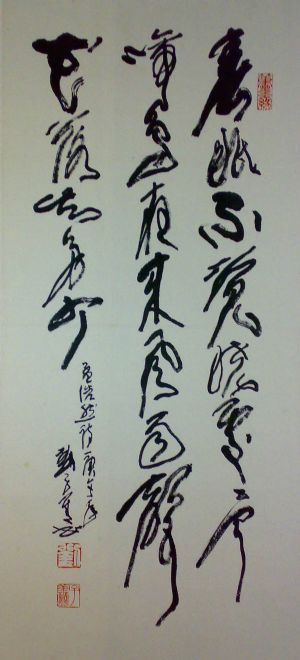 春眠不覺曉處々聞
啼鳥夜来風雨聲
花落知多少
孟浩然詩庚午年